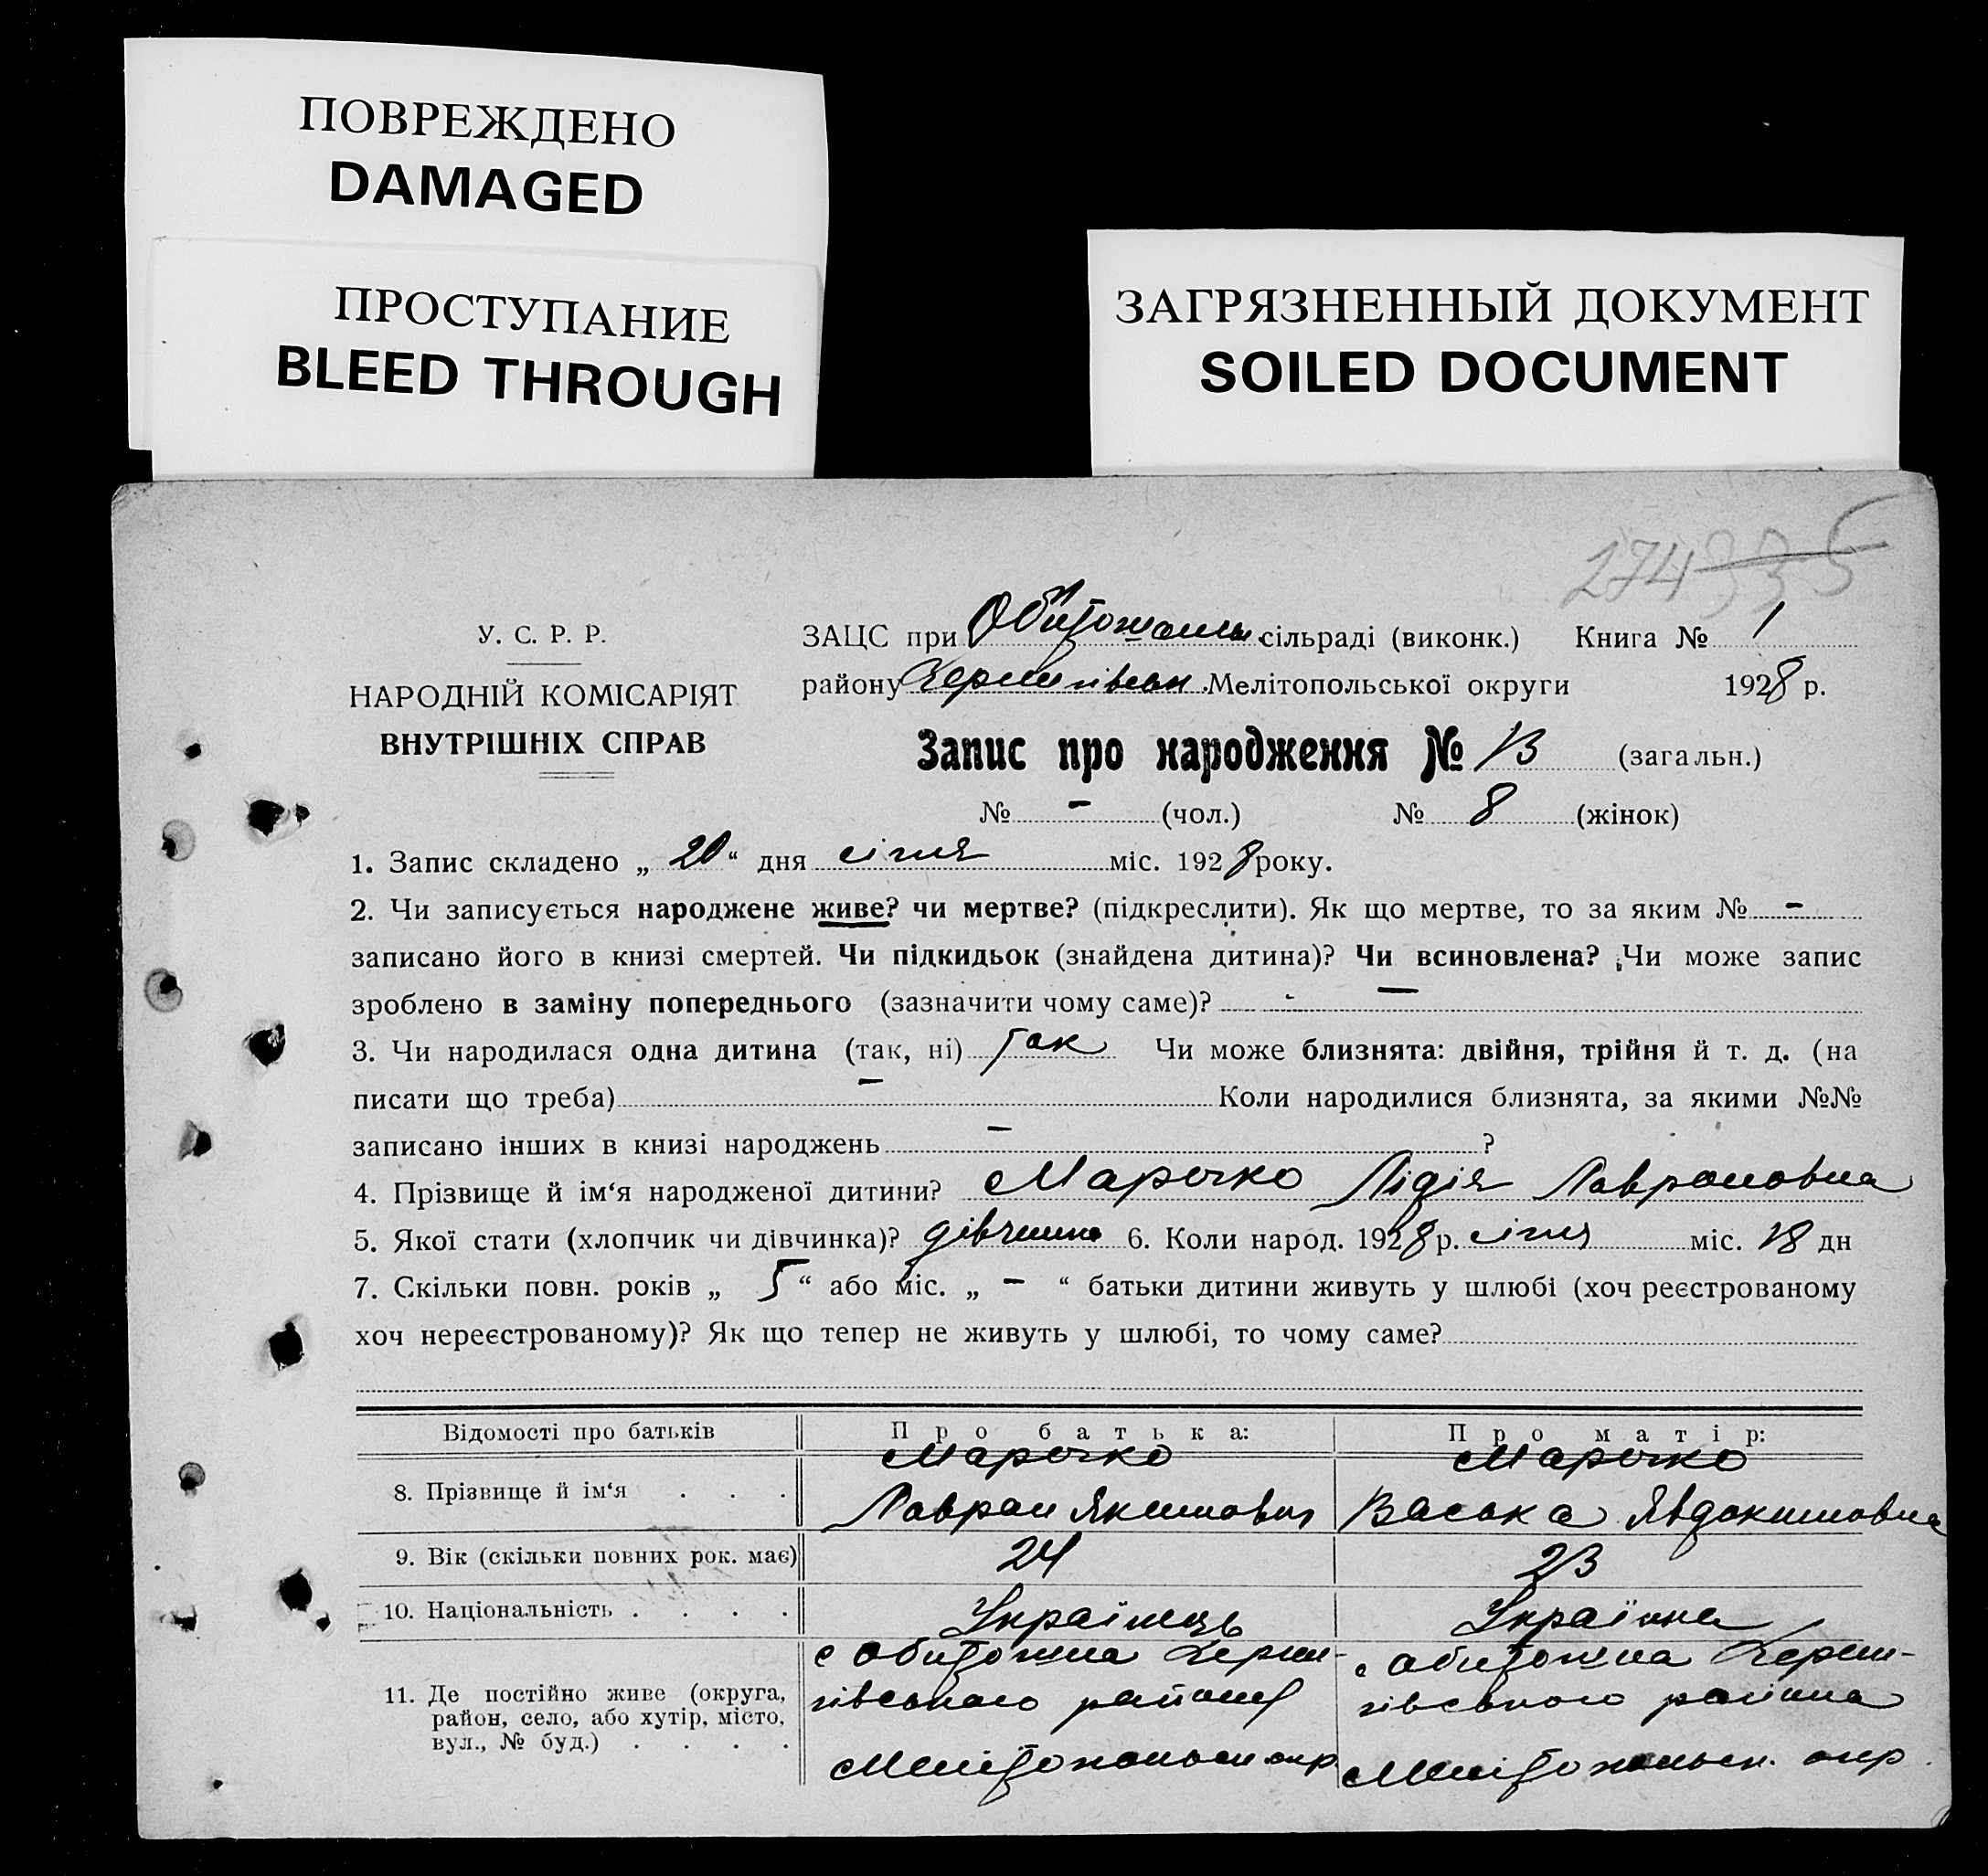 ПОВРЕЖДЕНО
DAMAGED
ПРОСТУПАНИЕ
BLEED THROUGH
ЗАГРЯЗНЕННЫЙ ДОКУМЕНТ
SOILED DOCUMENT
274 335
У. С. Р. Р.
НАРОДНІЙ КОМІСАРІЯТ
ВНУТРІШНІХ СПРАВ
ЗАЦС при сільраді (виконк.) Книга № 1
району Мелітопольської округи 1928 р.
Запис про народження № 13 (загальн.)
№ - (чол.) № 8 (жінок)
1. Запис складено „ 20 “ дня січня міс. 1928 року.
2. Чи записується народжене живе? чи мертве? (підкреслити). Як що мертве, то за яким № -
записано його в книзі смертей. Чи підкидьок (знайдена дитина)? Чи всиновлена? Чи може запис
зроблено в заміну попереднього (зазначити чому саме)? —
3. Чи народилася одна дитина (так, ні) так Чи може близнята: двійня, трійня й т. д. (на
писати що треба) — Коли народилися близнята, за якими №№
записано інших в книзі народжень — ?
4. Прізвище й ім‘я народженої дитини? Марочко Лідія Лавроновна
5. Якої стати (хлопчик чи дівчинка)? дівчинка 6. Коли народ. 1928 р. січня міс. 18 дн
7. Скільки повн. років „ 5 “ або міс. „ — “ батьки дитини живуть у шлюбі (хоч реєстрованому
хоч нереєстрованому)? Як що тепер не живуть у шлюбі, то чому саме?
Відомості про батьків Про батька: Про матір:
8. Прізвище й ім‘я . . . Марочко Марочко
Лаврон Якимович Васька Явдокимовна
9. Вік (скільки повних рок. має) 24 23
10. Національність . . . . Українець Українка
11. Де постійно живе (округа,
район, село, або хутір, місто,
вул., № буд.) . . . .
с Обиточна Черни-
гівського району
Мелітопольськ окр.
с Обиточна Черни-
гівського района
Мелітопольськ. окр.